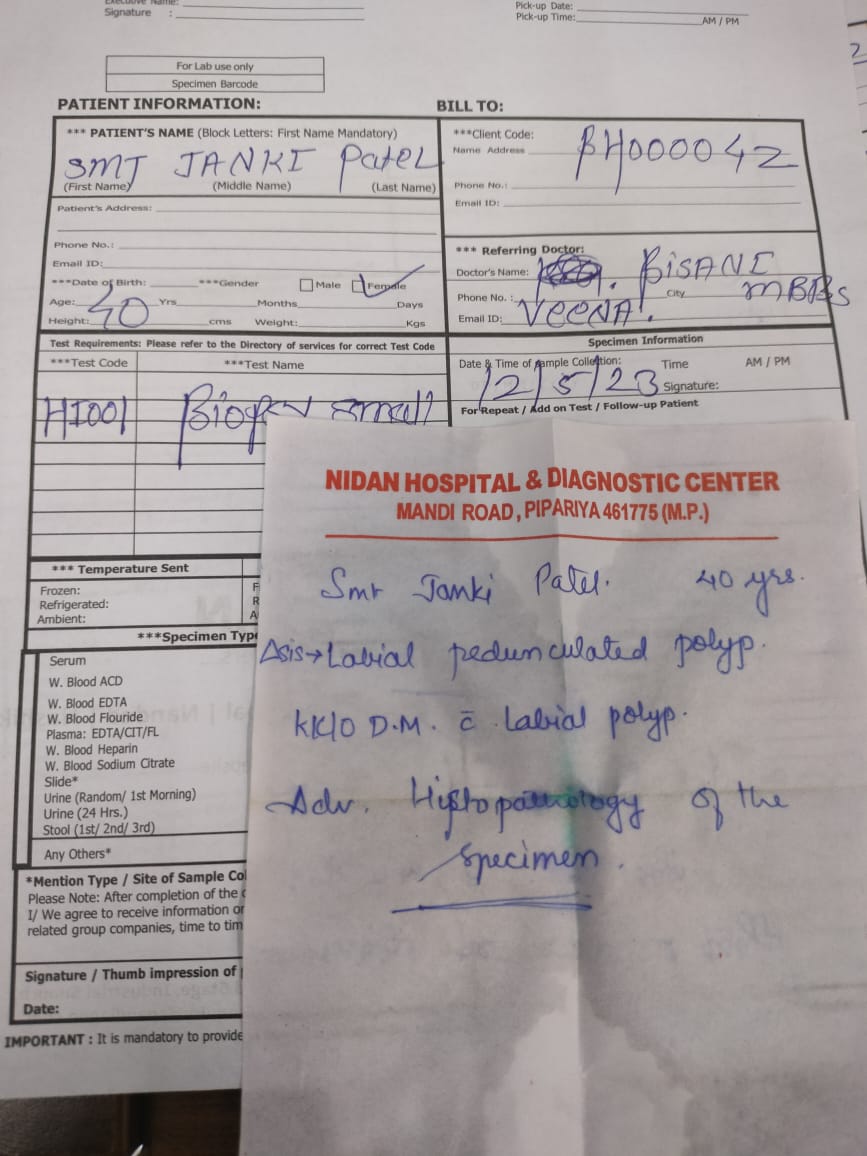 Executive Name:
Signature :
Pick-up Date:
Pick-up Time: AM / PM
2
For Lab use only
Specimen Barcode
PATIENT INFORMATION:
*** PATIENT'S NAME (Block Letters: First Name Mandatory)
SMT JANKI Patel
(First Name) (Middle Name) (Last Name)
Patient's Address:
Phone No.:
Email ID:
***Date of Birth: ***Gender Male Female
Age: 40 Yrs Months Days
Height: cms Weight: Kgs
BILL TO:
***Client Code: BH000042
Name Address
Phone No.:
Email ID:
*** Referring Doctor:
Doctor's Name: . BISANI
Phone No. : City MBBS
Email ID: VEENA.
Test Requirements: Please refer to the Directory of services for correct Test Code
***Test Code ***Test Name
HI001 small
Specimen Information
Date & Time of Sample Collection: Time AM / PM
12/5/23 Signature:
For Repeat / Add on Test / Follow-up Patient
*** Temperature Sent
Frozen: F
Refrigerated: R
Ambient: A
***Specimen Typ
Serum
W. Blood ACD
W. Blood EDTA
W. Blood Flouride
Plasma: EDTA/CIT/FL
W. Blood Heparin
W. Blood Sodium Citrate
Slide*
Urine (Random/ 1st Morning)
Urine (24 Hrs.)
Stool (1st/ 2nd/ 3rd)
Any Others*
*Mention Type / Site of Sample Co
Please Note: After completion of the
I/ We agree to receive information or
related group companies, time to tim
Signature / Thumb impression of
Date:
IMPORTANT : It is mandatory to provide
NIDAN HOSPITAL & DIAGNOSTIC CENTER
MANDI ROAD, PIPARIYA 461775 (M.P.)
Smt Janki Patel. 40 yrs.
→ Labial pedunculated polyp.
K/C/O D.M. c̄ Labial polyp.
Adv. Histopathology of the
specimen.